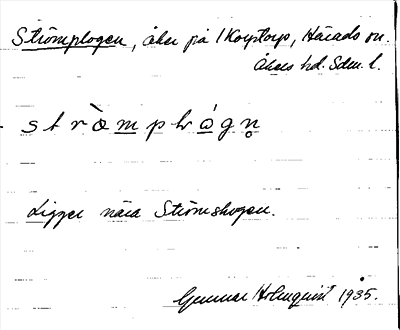 Strömplogen, åker på 1 Korptorp, Härads sn.
Åkers hd. Sdm. l.
s t r ò m p l å g n̥
Ligger nära Strömshagen.
Gunnar Holmquist 1935.